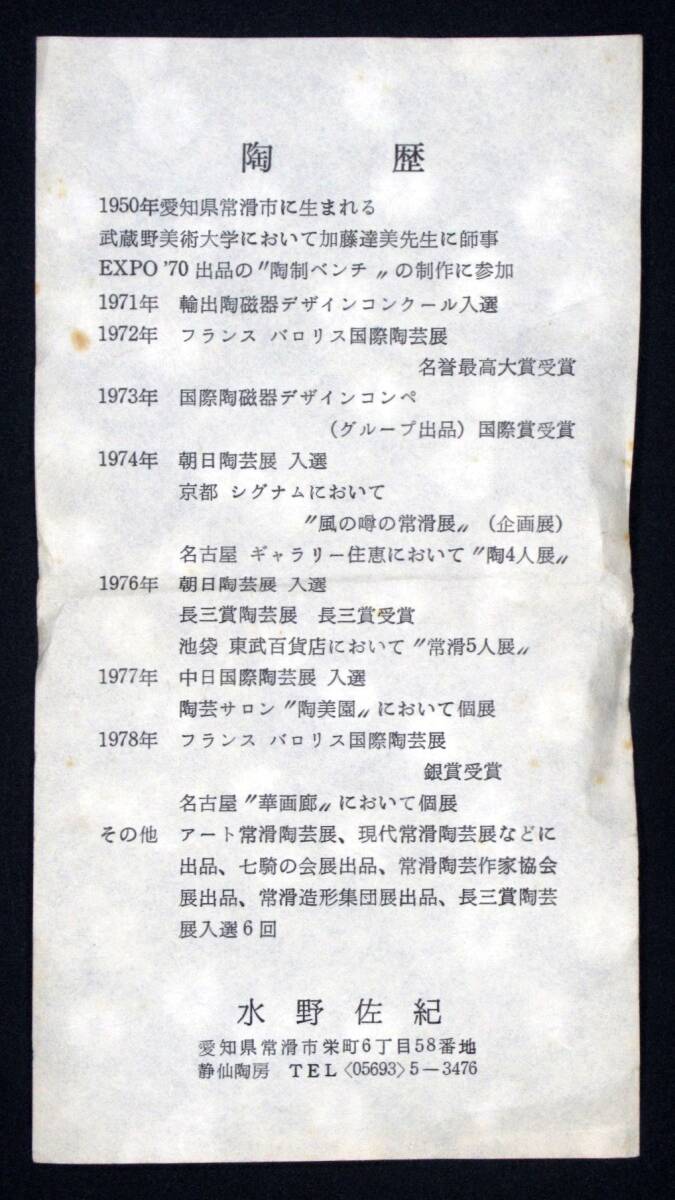 陶歴
1950年愛知県常滑市に生まれる
武蔵野美術大学において加藤達美先生に師事
EXPO '70 出品の〝陶制ベンチ〟の制作に参加
1971年 輸出陶磁器デザインコンクール入選
1972年 フランス バロリス国際陶芸展
名誉最高大賞受賞
1973年 国際陶磁器デザインコンペ
(グループ出品) 国際賞受賞
1974年 朝日陶芸展 入選
京都 シグナムにおいて
〝風の噂の常滑展〟 (企画展)
名古屋 ギャラリー住恵において〝陶4人展〟
1976年 朝日陶芸展 入選
長三賞陶芸展 長三賞受賞
池袋 東武百貨店において〝常滑5人展〟
1977年 中日国際陶芸展 入選
陶芸サロン〝陶美園〟において個展
1978年 フランス バロリス国際陶芸展
銀賞受賞
名古屋〝華画廊〟において個展
その他 アート常滑陶芸展、現代常滑陶芸展などに
出品、七騎の会展出品、常滑陶芸作家協会
展出品、常滑造形集団展出品、長三賞陶芸
展入選6回
水野佐紀
愛知県常滑市栄町6丁目58番地
静仙陶房 TEL〈05693〉5−3476